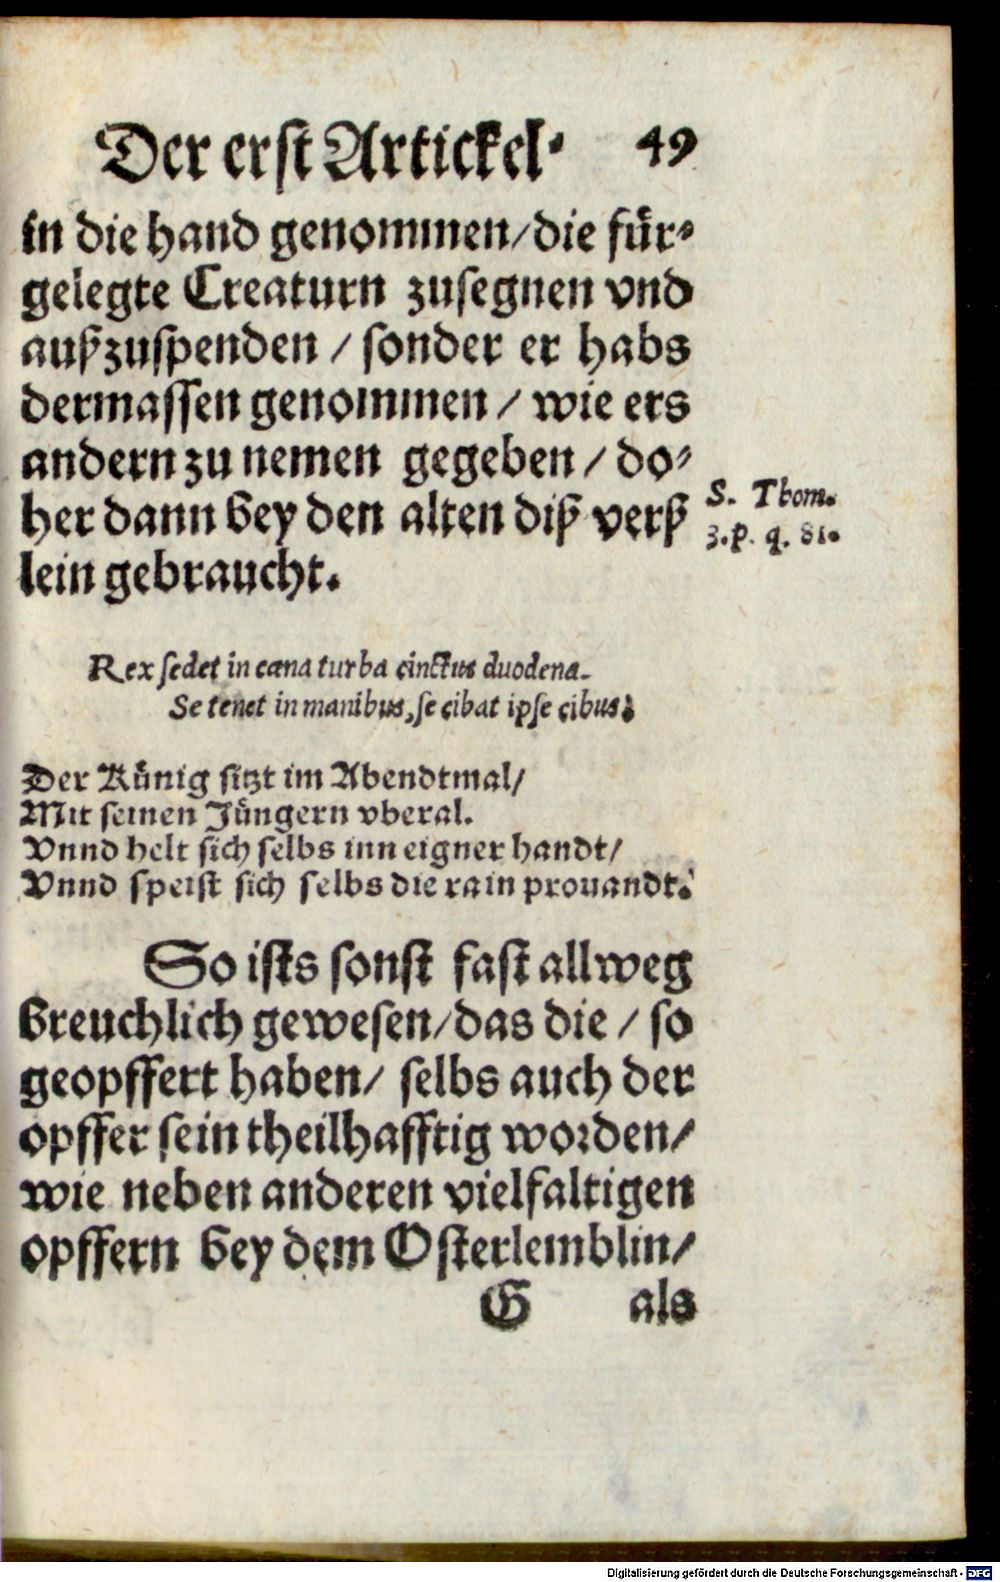 Der erst Artickel. 49
in die hand genommen/die für-
gelegte Creaturn zusegnen vnd
außzuspenden / sonder er habs
dermassen genommen / wie ers
andern zu nemen gegeben / do-
her dann bey den alten diß verß
lein gebraucht.
S. Thom.
3.p. q. 81.
Rex sedet in cæna turba cinctus duodena.
Se tenet in manibus, se cibat ipse cibus.
Der Künig sitzt im Abendtmal/
Mit seinen Jüngern vberal.
Vnnd helt sich selbs inn eigner handt/
Vnnd speist sich selbs die rain prouandt.
So ists sonst fast allweg
breuchlich gewesen/das die / so
geopffert haben/ selbs auch der
opffer sein theilhafftig worden/
wie neben anderen vielfaltigen
opffern bey dem Osterlemblin/
G als
Digitalisierung gefördert durch die Deutsche Forschungsgemeinschaft - DFG